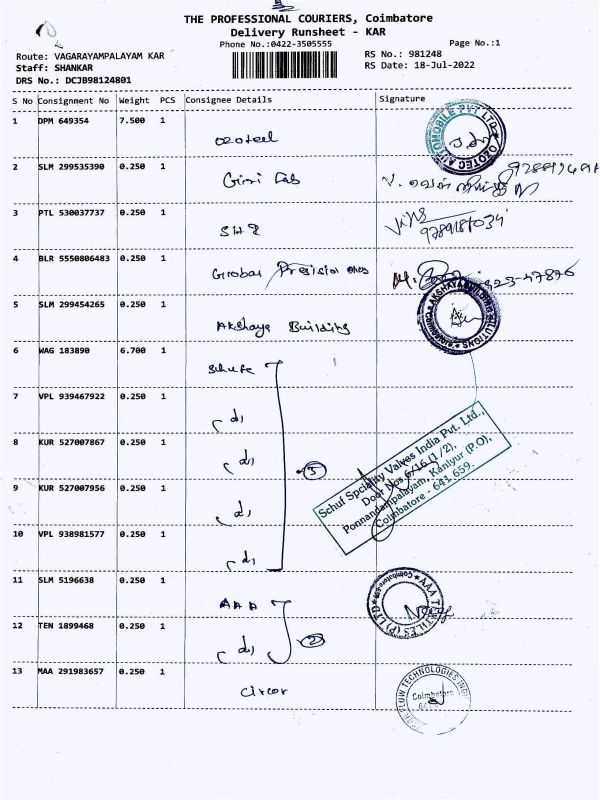 THE PROFESSIONAL COURIERS, Coimbatore
Delivery Runsheet - KAR
Phone No.:0422-3505555
Page No.:1
Route: VAGARAYAMPALAYAM KAR
RS No.: 981248
Staff: SHANKAR
RS Date: 18-Jul-2022
DRS No.: DCJB98124801
S No Consignment No Weight PCS Consignee Details Signature
1 DPM 649354 7.500 1 Ozotech
OZOTEC AUTOMOBILE PVT LTD
2 SLM 299535390 0.250 1 Giri Lab
3 PTL 530037737 0.250 1
4 BLR 5550806483 0.250 1 Global Precision
5 SLM 299454265 0.250 1 Akshaya Building
AKSHAYA BUILDING SOLUTIONS
6 WAG 183890 6.700 1 Schufe
7 VPL 939467922 0.250 1
8 KUR 527007867 0.250 1
9 KUR 527007956 0.250 1
10 VPL 938981577 0.250 1
5
Schuf Spciality Valves India Pvt. Ltd.,
Door Nos 6/16 (1/2),
Ponnandampalayam, Kaniyur (P.O),
Coimbatore - 641 659.
11 SLM 5196638 0.250 1 AAA
12 TEN 1899468 0.250 1
2
AAA TEXTILES (P) LTD
13 MAA 291983657 0.250 1 Circor
FLOW TECHNOLOGIES
Coimbatore